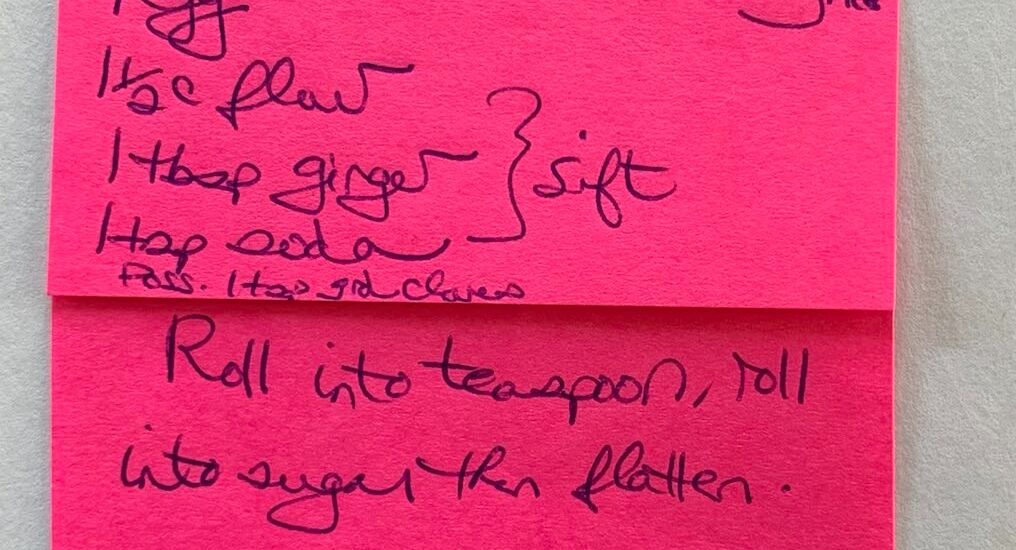 1 1/2 c flour
1 tbsp ginger } sift
1 tsp soda
Poss. 1 tsp grd cloves
Roll into teaspoon, roll
into sugar then flatten.